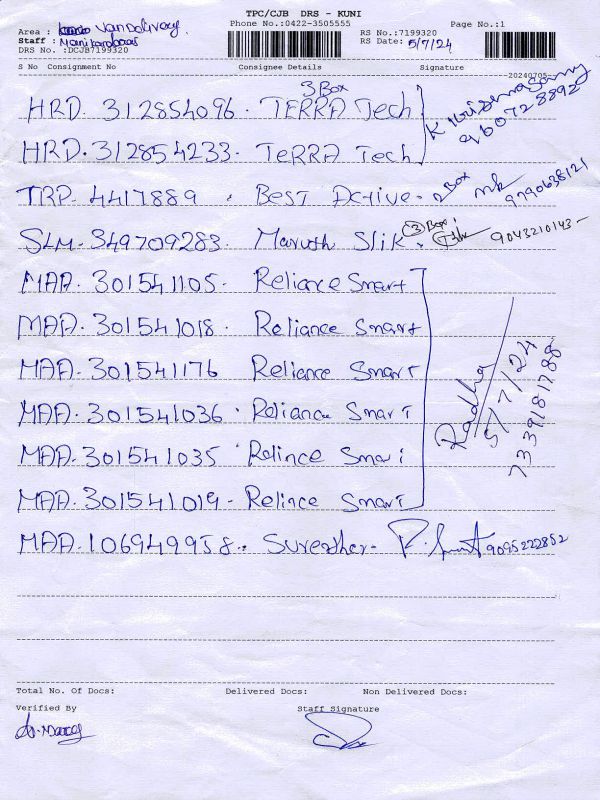 TPC/CJB DRS - KUNI
Area : Van Delivery
Phone No.:0422-3505555 RS No.:7199320 Page No.:1
Staff :
RS Date: 5/7/24
DRS No. :DCJB7199320
S No Consignment No Consignee Details Signature
20240705
3 Box
HRD. 312854096 - TERRA Tech
960728892
HRD. 312854233 - TeRRA Tech
TRP. 4417889 . BEST Active - 2 Box 9790638121
SLM- 349709283. Marush Slik. 3 Box 9043210143-
MAA. 301541105. Reliance Smart
MAA. 301541018. Reliance Smart
MAA. 301541176 Reliance Smart
MAA. 301541036. Reliance Smart
MAA. 301541035 Relince Smart
MAA. 301541019 - Relince Smart
Radha
5/7/24
7339181788
MAA. 106949958. 9095222852
Total No. Of Docs: Delivered Docs: Non Delivered Docs:
Verified By Staff Signature